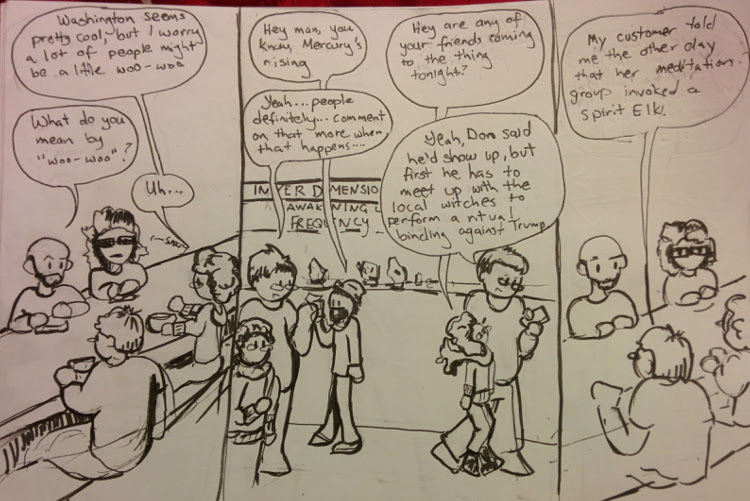 Washington seems
pretty cool, but I worry
a lot of people might
be a little woo-woo
What do you
mean by
"woo-woo"?
Uh...
Hey man, you
know, Mercury's
rising
Yeah... people
definitely... comment
on that more when
that happens....
INTER DIMENSIO
AWAKENING
FREQUENCY
Hey are any of
your friends coming
to the thing
tonight?
Yeah, Dom said
he'd show up, but
first he has to
meet up with the
local witches to
perform a ritual
binding against Trump
My customer told
me the other day
that her meditation
group invoked a
spirit Elk.